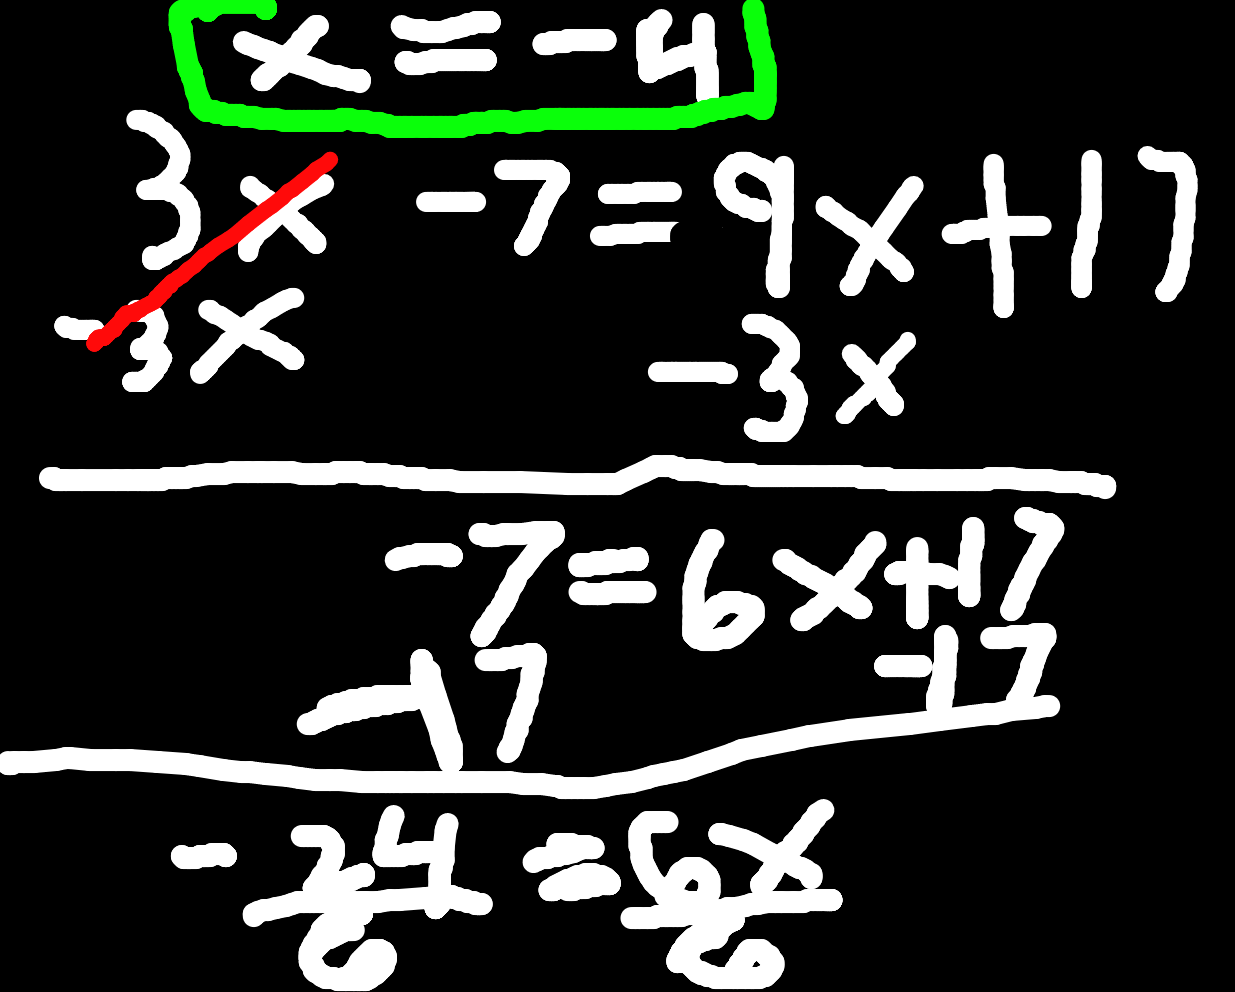 x = -4
3x -7 = 9x + 17
-3x -3x
-7 = 6x + 17
-17 -17
-24 = 6x
6 6